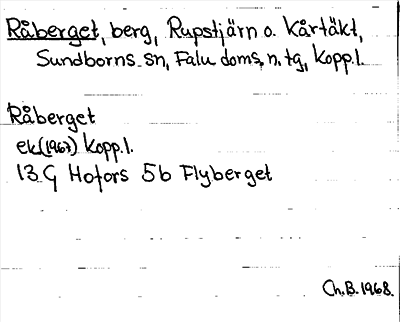 Råberget, berg, Rupstjärn o. Kårtäkt,
Sundborns sn, Falu doms. n. tg, Kopp.l.
Råberget
ek (1967) Kopp.l.
13 G Hofors 5b Flyberget
Ch.B. 1968.